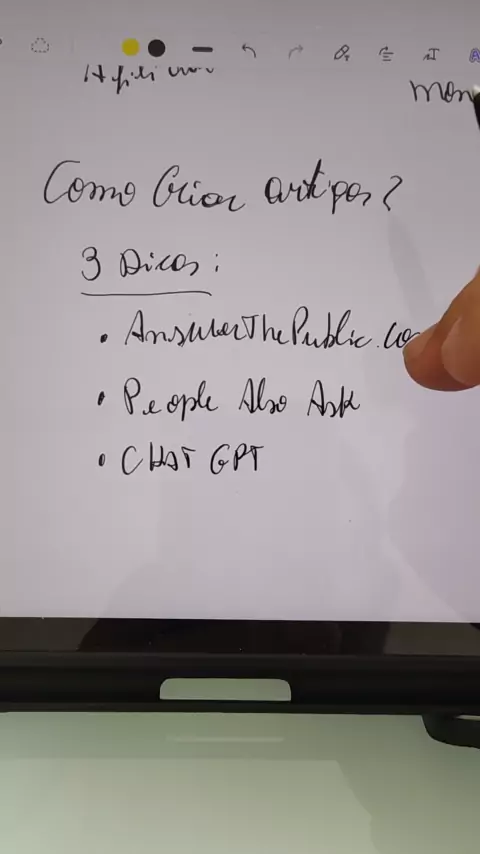 Como Criar artigos?
3 Dicas:
• AnswerThePublic.co
• People Also Ask
• CHAT GPT